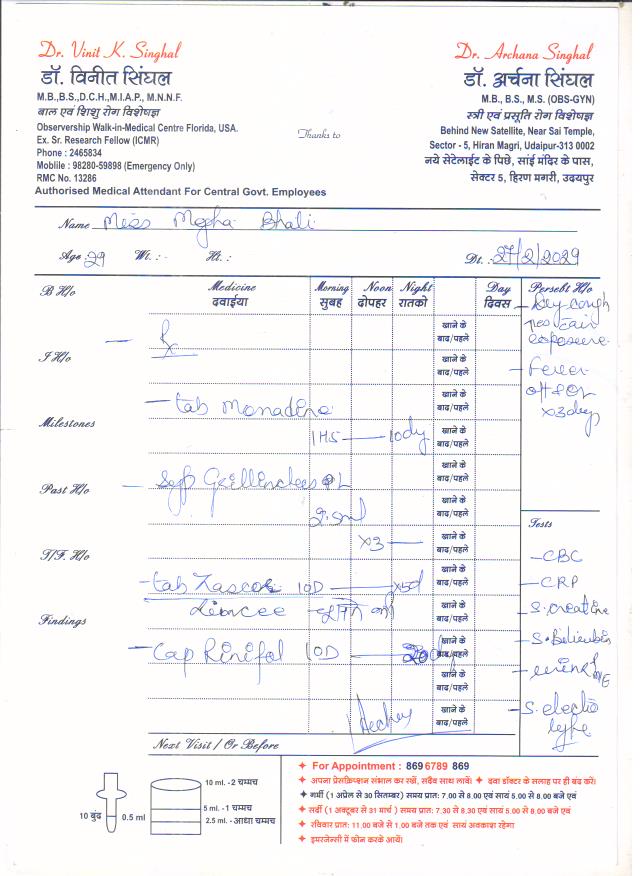 Dr. Vinit K. Singhal
डॉ. विनीत सिंघल
M.B.,B.S.,D.C.H.,M.I.A.P., M.N.N.F.
बाल एवं शिशु रोग विशेषज्ञ
Observership Walk-in-Medical Centre Florida, USA.
Ex. Sr. Research Fellow (ICMR)
Phone : 2465834
Moblile : 98280-59898 (Emergency Only)
RMC No. 13286
Authorised Medical Attendant For Central Govt. Employees
Thanks to
Dr. Archana Singhal
डॉ. अर्चना सिंघल
M.B., B.S., M.S. (OBS-GYN)
स्त्री एवं प्रसूति रोग विशेषज्ञ
Behind New Satellite, Near Sai Temple,
Sector - 5, Hiran Magri, Udaipur-313 0002
नये सेटेलाईट के पिछे, सांई मंदिर के पास,
सेक्टर 5, हिरण मगरी, उदयपुर
Name Miss Megha Bhali
Age :29 Wt. :- Ht. : Dt. :27/2/2029
B H/o Medicine Morning Noon Night Day Persebt H/o
दवाईया सुबह दोपहर रातको दिवस
Dry cough
exposure
Fever
off & on
x3day
Rx
I H/o
tab
Milestones
1HS 10dy
Syp
Past H/o
x3
T/F. H/o
tab 10D x5d
Limcee
Findings
Cap Rinifol 10D
खाने के
बाद/पहले
खाने के
बाद/पहले
खाने के
बाद/पहले
खाने के
बाद/पहले
खाने के
बाद/पहले
खाने के
बाद/पहले
खाने के
बाद/पहले
खाने के
बाद/पहले
खाने के
बाद/पहले
खाने के
बाद/पहले
खाने के
बाद/पहले
खाने के
बाद/पहले
Tests
-CBC
-CRP
S. creatine
S. Bilieubin
S. electro
lyte
Next Visit / Or Before
10 बुंद 0.5 ml
10 ml. - 2 चम्मच
5 ml. - 1 चम्मच
2.5 ml. - आधा चम्मच
For Appointment : 869 6789 869
अपना प्रेसक्रिप्शन संभाल कर रखें, सदैव साथ लावें। दवा डॉक्टर के सलाह पर ही बंद करें।
गर्मी (1 अप्रेल से 30 सितम्बर) समय प्रातः 7.00 से 8.00 एवं सायं 5.00 से 8.00 बजे एवं
सर्दी (1 अक्टूबर से 31 मार्च ) समय प्रातः 7.30 से 8.30 एवं सायं 5.00 से 8.00 बजे एवं
रविवार प्रातः 11.00 बजे से 1.00 बजे तक एवं सायं अवकाश रहेगा
इमरजेन्सी में फोन करके आयें।